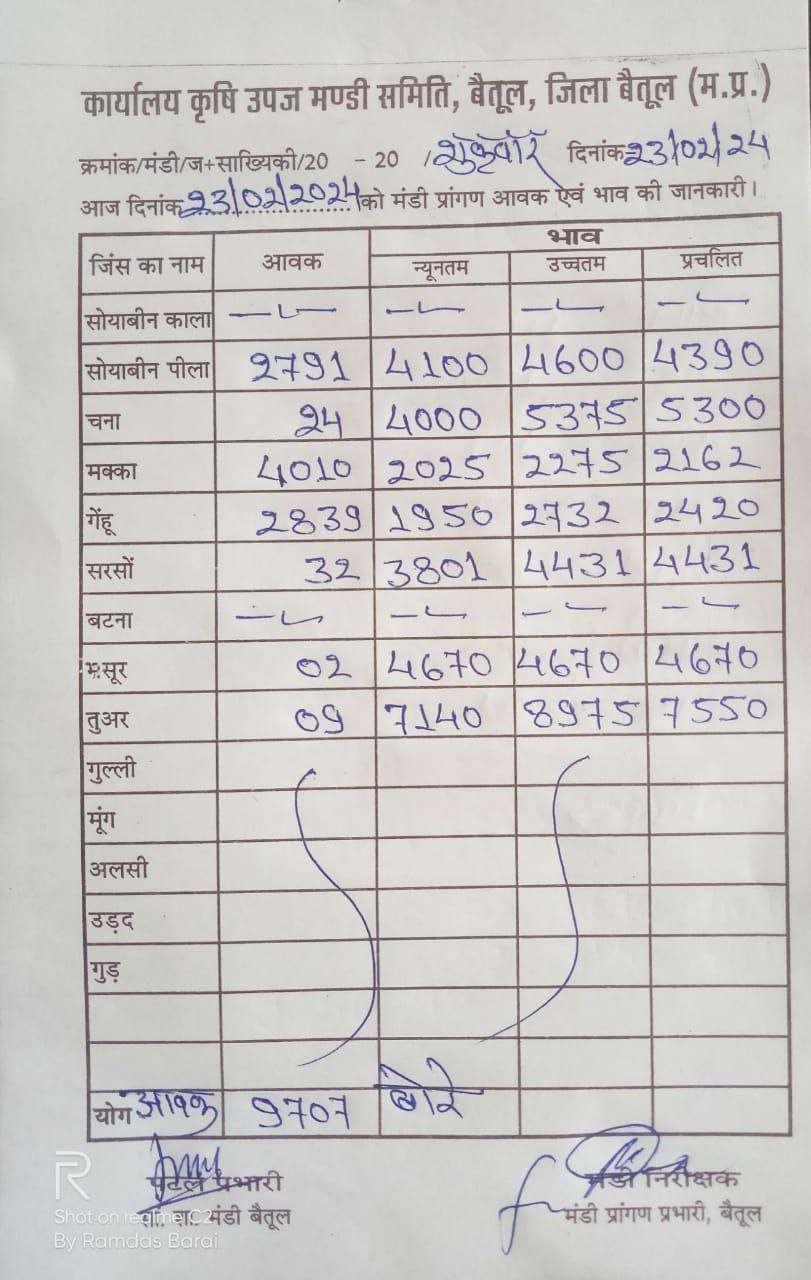 कार्यालय कृषि उपज मण्डी समिति, बैतूल, जिला बैतूल (म.प्र.)
क्रमांक/मंडी/ज+साख्यिकी/20 - 20 /शुक्रवार दिनांक 23/02/24
आज दिनांक 23/02/2024 को मंडी प्रांगण आवक एवं भाव की जानकारी।
जिंस का नाम आवक भाव
न्यूनतम उच्चतम प्रचलित
सोयाबीन काला
सोयाबीन पीला 2791 4100 4600 4390
चना 24 4000 5375 5300
मक्का 4010 2025 2275 2162
गेंहू 2839 1950 2732 2420
सरसों 32 3801 4431 4431
बटना
मसूर 02 4670 4670 4670
तुअर 09 7140 8975 7550
गुल्ली
मूंग
अलसी
उड़द
गुड़
योग आवक 9707 बोरे
पटल प्रभारी मंडी निरीक्षक
सां. शा. मंडी बैतूल मंडी प्रांगण प्रभारी, बैतूल
R
Shot on realme C2
By Ramdas Barai